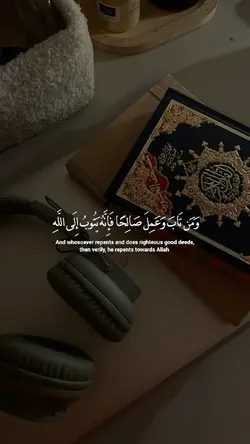 وَمَن تَابَ وَعَمِلَ صَالِحًا فَإِنَّهُ يَتُوبُ إِلَى اللَّهِ
And whosoever repents and does righteous good deeds,
then verily, he repents towards Allah